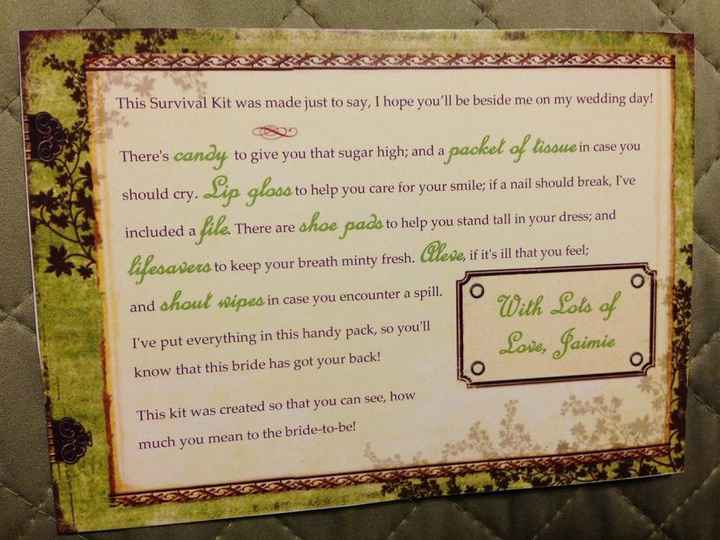 This Survival Kit was made just to say, I hope you'll be beside me on my wedding day!
There's candy to give you that sugar high; and a packet of tissue in case you
should cry. Lip gloss to help you care for your smile; if a nail should break, I've
included a file. There are shoe pads to help you stand tall in your dress; and
lifesavers to keep your breath minty fresh. Aleve, if it's ill that you feel;
and shout wipes in case you encounter a spill.
I've put everything in this handy pack, so you'll
know that this bride has got your back!
This kit was created so that you can see, how
much you mean to the bride-to-be!
With Lots of
Love, Jaimie